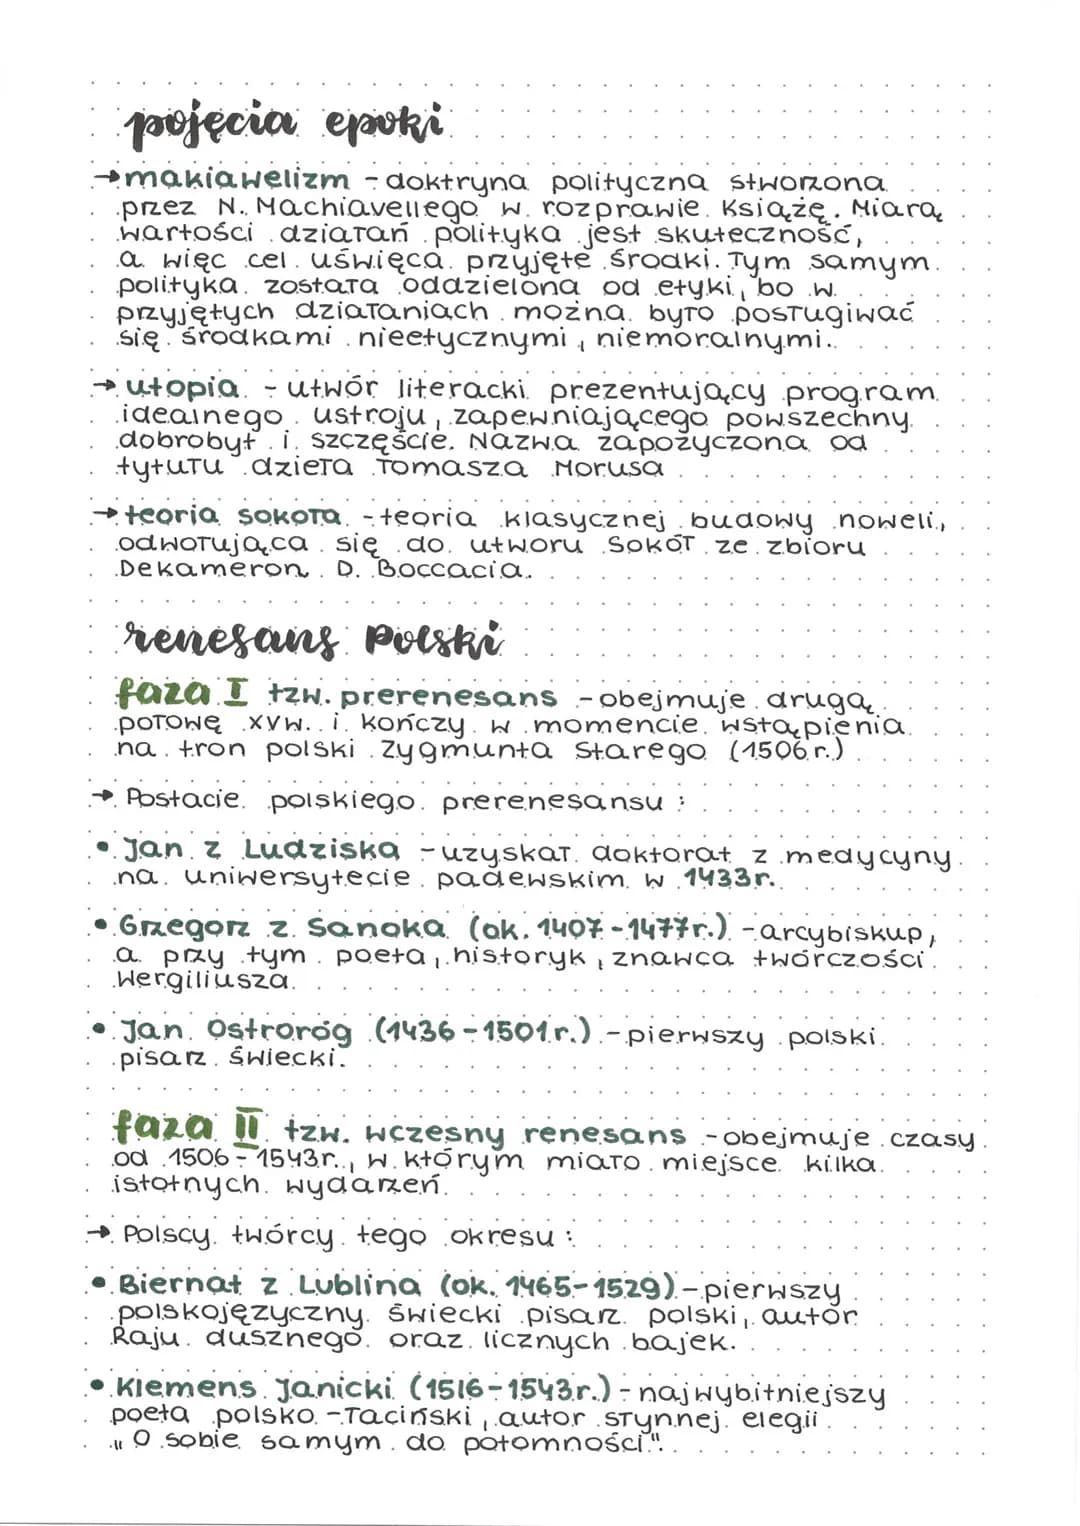 pojęcia epoki
→ makiawelizm - doktryna polityczna stworzona
przez N. Machiavellego w rozprawie Książę. Miarą
wartości działań polityka jest skuteczność,
a więc cel uświęca przyjęte środki. Tym samym
polityka została oddzielona od etyki, bo w
przyjętych działaniach można było posługiwać
się środkami nieetycznymi, niemoralnymi.
→ utopia - utwór literacki prezentujący program
idealnego ustroju, zapewniającego powszechny
dobrobyt i szczęście. Nazwa zapożyczona od
tytułu dzieła Tomasza Morusa
→ teoria sokoła - teoria klasycznej budowy noweli,
odwołująca się do utworu Sokół ze zbioru
Dekameron D. Boccacia.
renesans Polski
faza I tzw. prerenesans - obejmuje drugą
połowę XVw. i kończy w momencie wstąpienia
na tron polski Zygmunta Starego (1506r.)
→ Postacie polskiego prerenesansu:
• Jan z Ludziska - uzyskał doktorat z medycyny
na uniwersytecie padewskim w 1433r.
• Grzegorz z Sanoka (ok. 1407-1477r.) - arcybiskup,
a przy tym poeta, historyk, znawca twórczości
Wergiliusza.
• Jan Ostroróg (1436-1501r.) - pierwszy polski
pisarz świecki.
faza II tzw. wczesny renesans - obejmuje czasy
od 1506-1543r., w którym miało miejsce kilka
istotnych wydarzeń.
→ Polscy twórcy tego okresu:
• Biernat z Lublina (ok. 1465-1529) - pierwszy
polskojęzyczny świecki pisarz polski, autor
Raju dusznego oraz licznych bajek.
• Klemens Janicki (1516-1543r.) - najwybitniejszy
poeta polsko-łaciński, autor słynnej elegii
„O sobie samym do potomności".